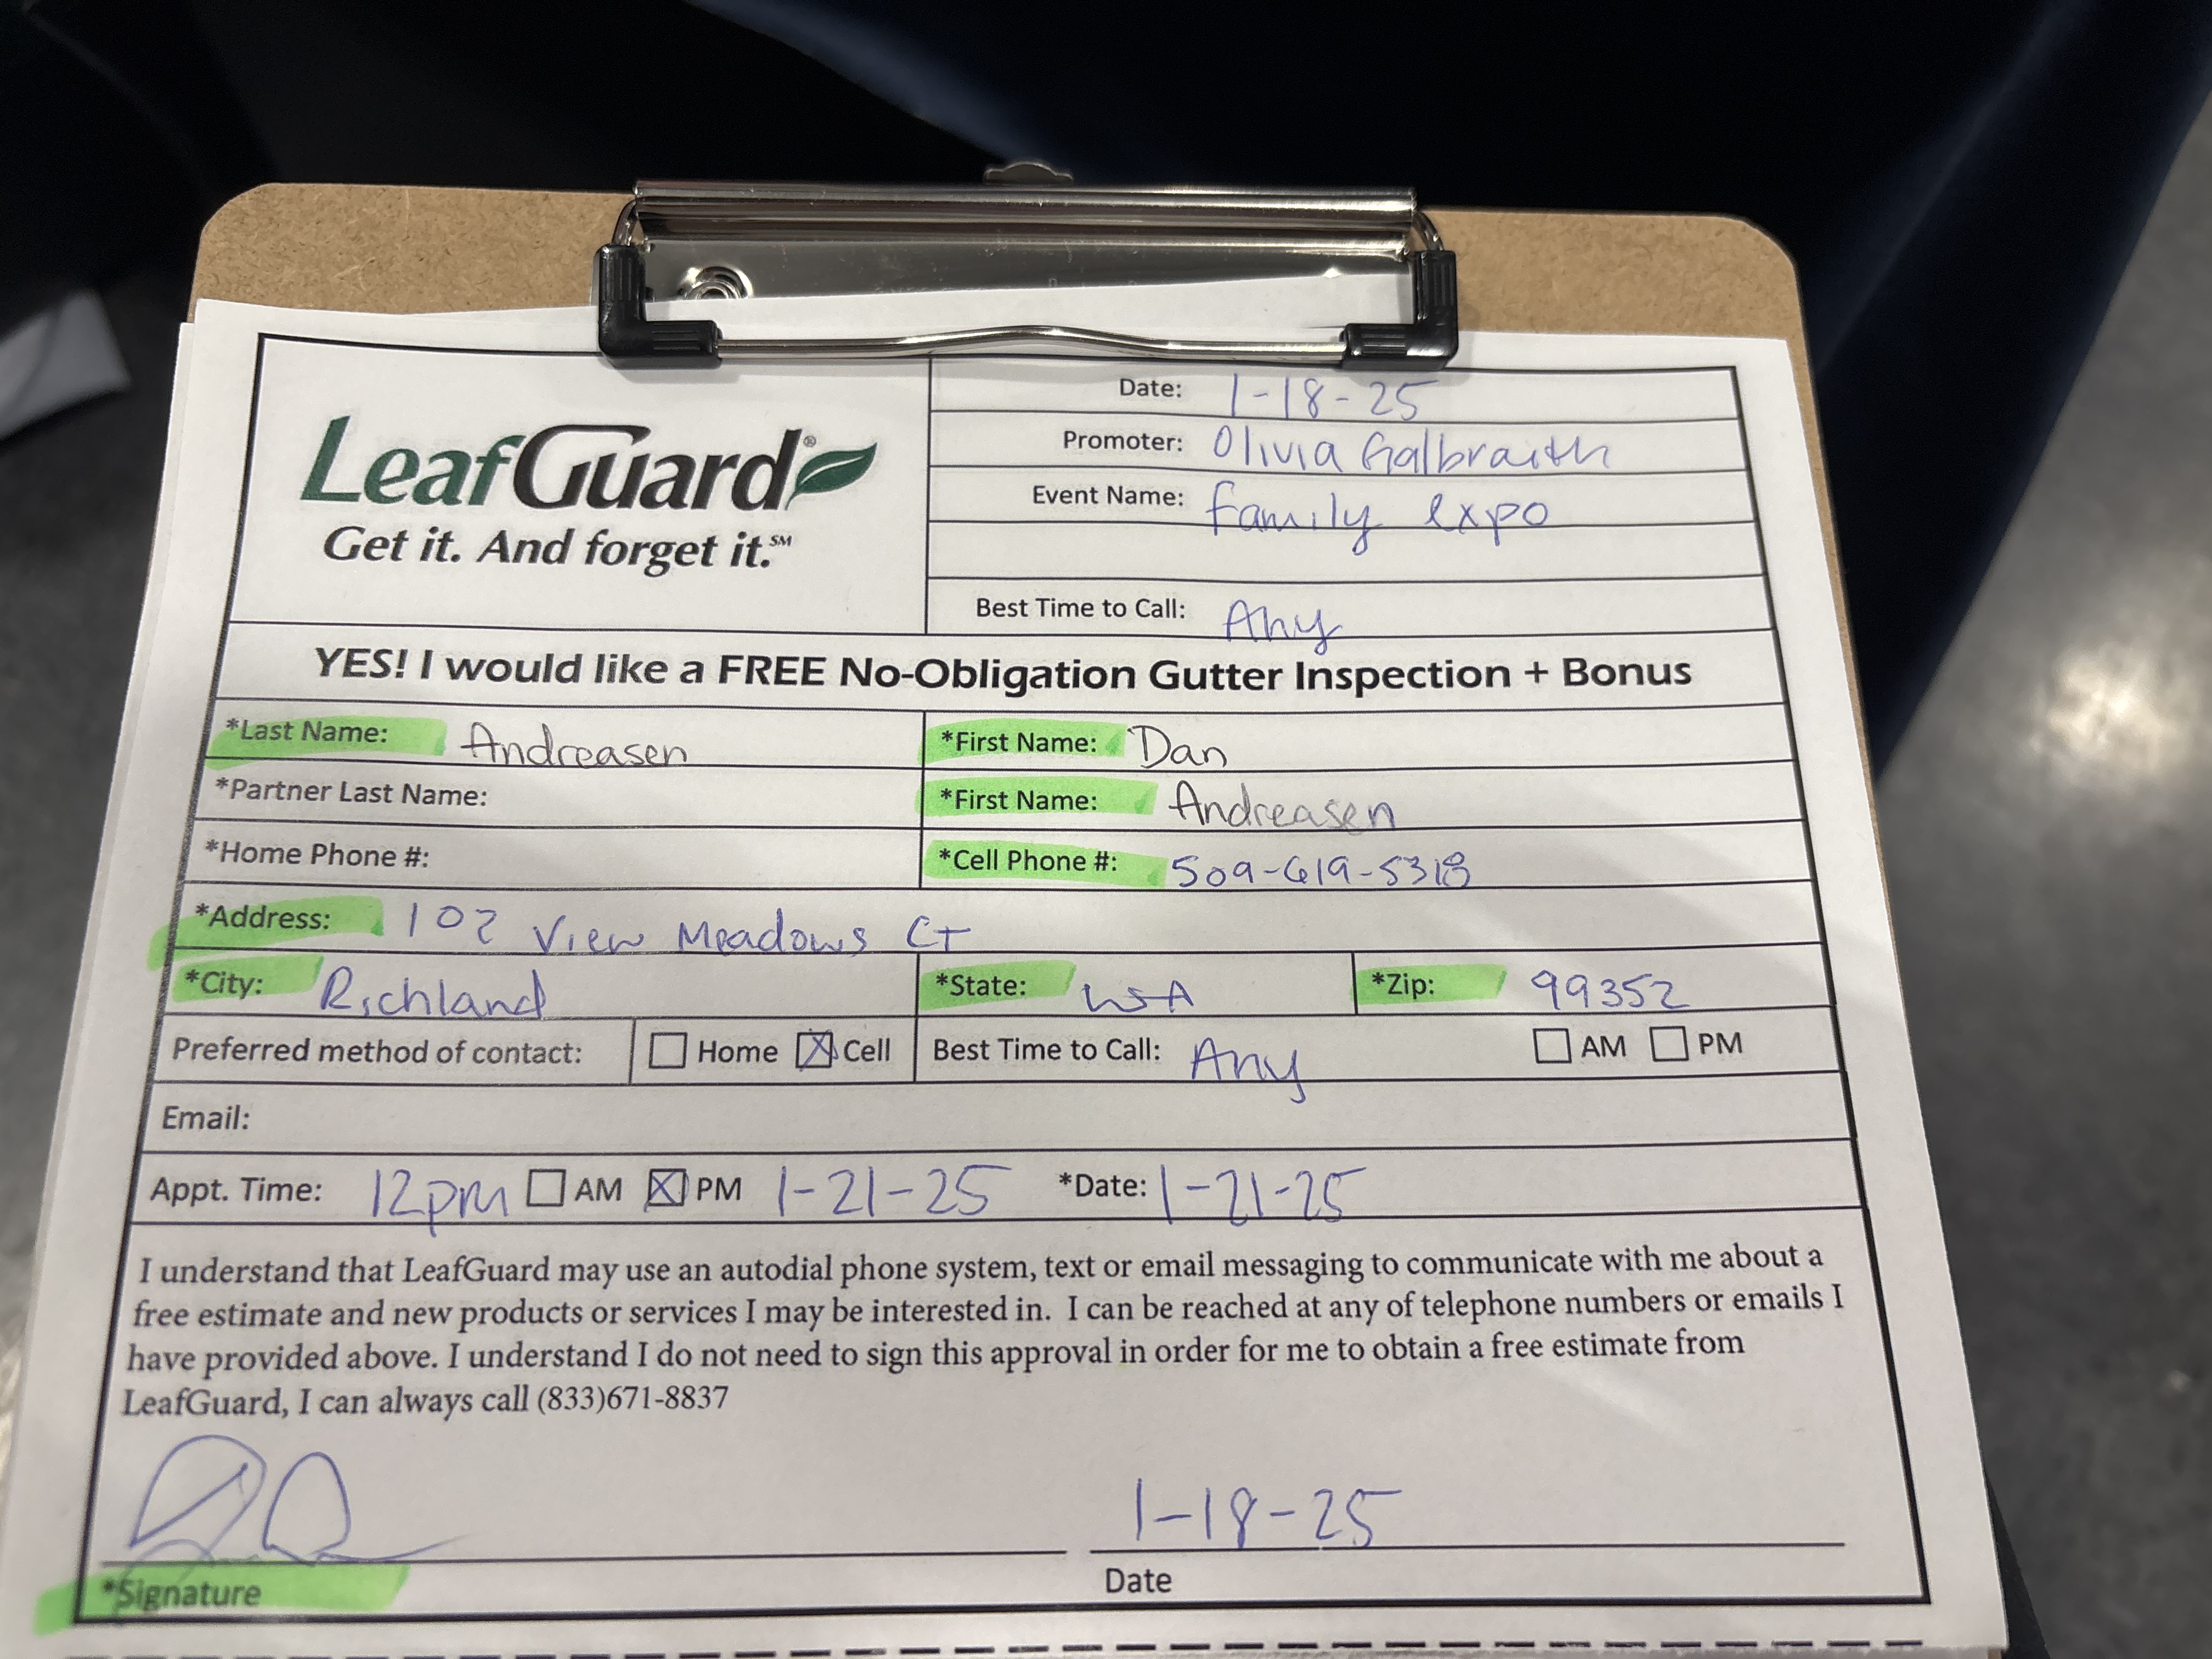 LeafGuard®
Get it. And forget it.℠
Date: 1-18-25
Promoter: Olivia Galbraith
Event Name: family expo
Best Time to Call: Any
YES! I would like a FREE No-Obligation Gutter Inspection + Bonus
*Last Name: Andreasen *First Name: Dan
*Partner Last Name: *First Name: Andreasen
*Home Phone #: *Cell Phone #: 509-619-5318
*Address: 102 View Meadows Ct
*City: Richland *State: WA *Zip: 99352
Preferred method of contact: ☐ Home ☒ Cell Best Time to Call: Any ☐ AM ☐ PM
Email:
Appt. Time: 12pm ☐ AM ☒ PM 1-21-25 *Date: 1-21-25
I understand that LeafGuard may use an autodial phone system, text or email messaging to communicate with me about a
free estimate and new products or services I may be interested in. I can be reached at any of telephone numbers or emails I
have provided above. I understand I do not need to sign this approval in order for me to obtain a free estimate from
LeafGuard, I can always call (833)671-8837
1-18-25
*Signature Date